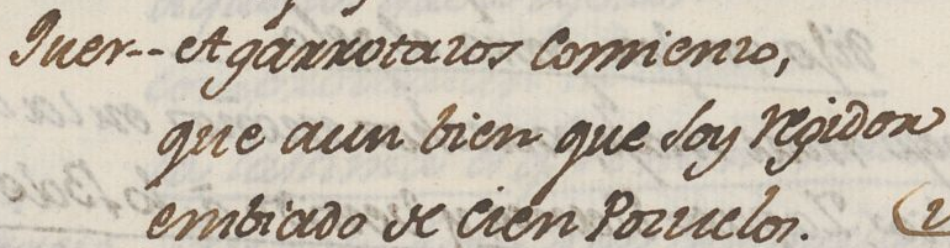 Juer-- Agarrotaros Comienzo,
que aun bien que soy regidor
embiado de cien Pozuelos.